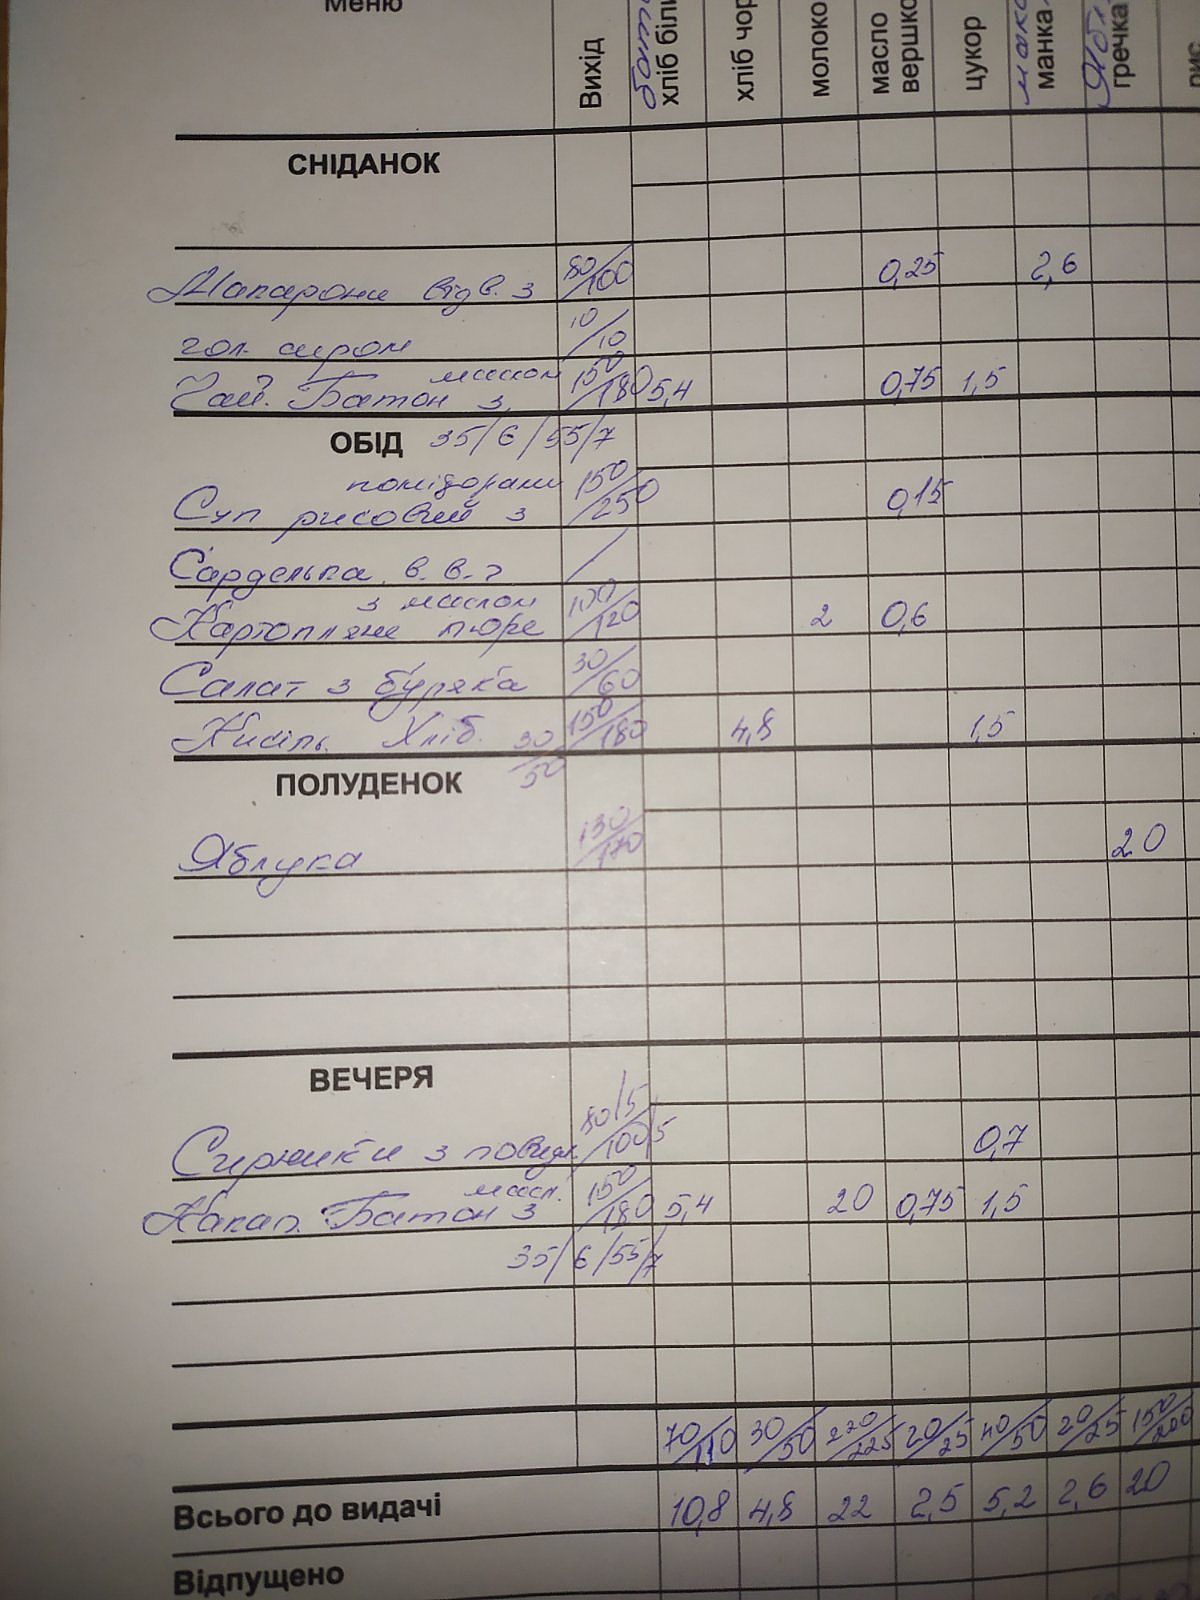 Меню Вихід батон хліб білий хліб чор молоко масло вершко цукор мака манка Ябл гречка рис
СНІДАНОК
Макарони відв. з 80/100 0,25 2,6
гол. сиром 10/10
маслом
Чай. Батон з 150/180 5,4 0,75 1,5
ОБІД 35/6/55/7
помідорами
Суп рисовий з 150/250 0,15
Сарделька в.в. /
з маслом
Картопляне пюре 100/120 2 0,6
Салат з буряка 30/60
Кисіль Хліб 30/50 150/180 4,8 1,5
ПОЛУДЕНОК
Яблука 130/170 20
ВЕЧЕРЯ
Сирники з повидл. 80/5 100/5 0,7
масл.
Какао. Батон з 150/180 5,4 20 0,75 1,5
35/6/55/7
70/110 30/50 220/225 20/25 40/50 20/25 150/200
Всього до видачі 10,8 4,8 22 2,5 5,2 2,6 20
Відпущено